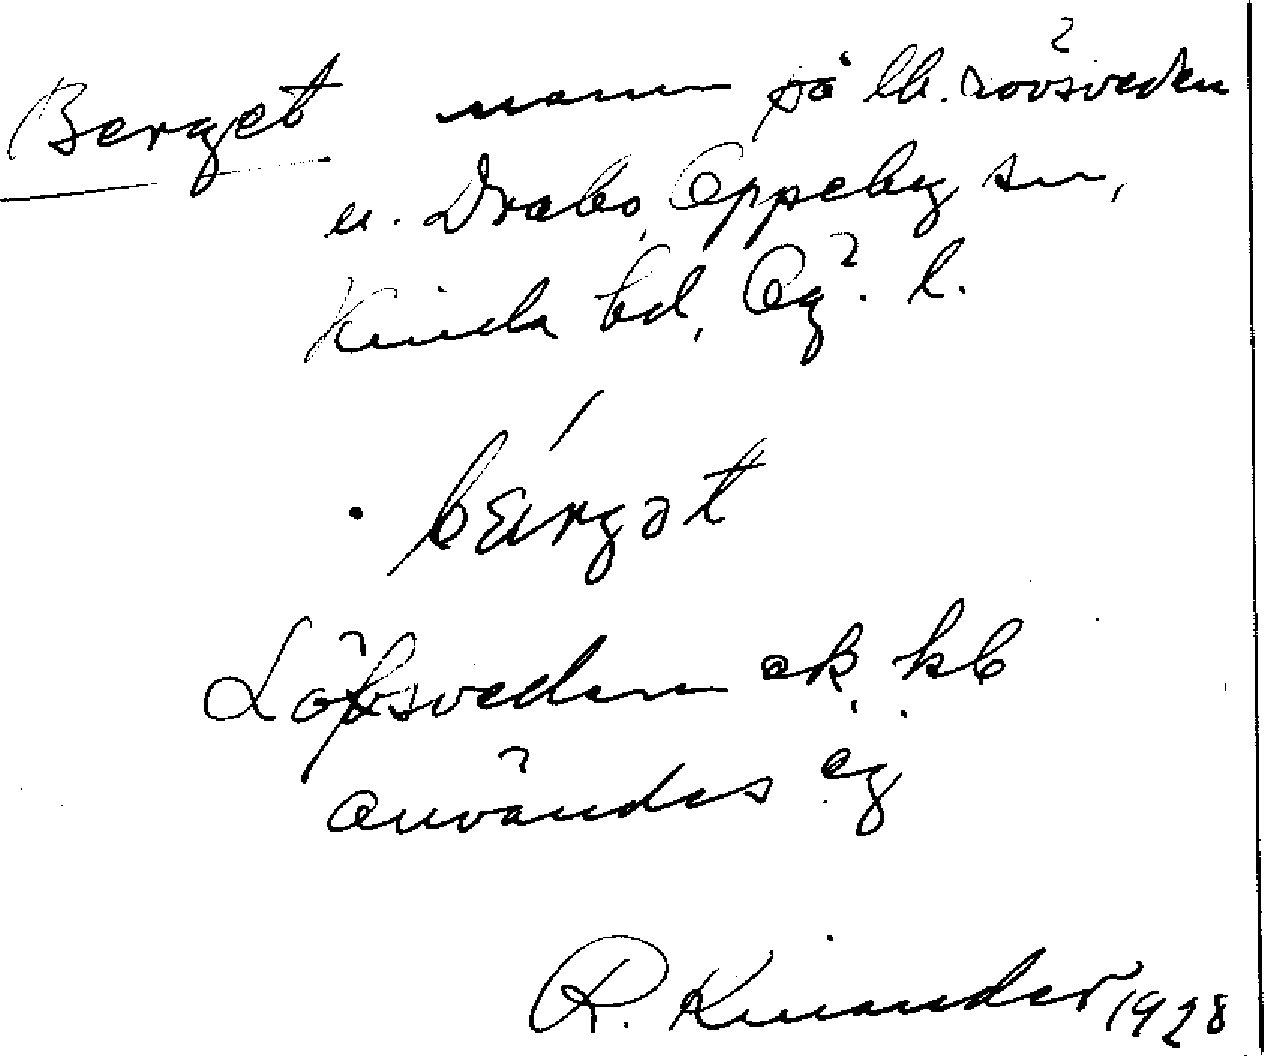 Berget namn på lh. Lövsveden
u. Drabo, Oppeby sn,
Kinda hd, Ög. l.
bärgət
Löfsveden ek. kb
användes ej
R. Kinander 1928